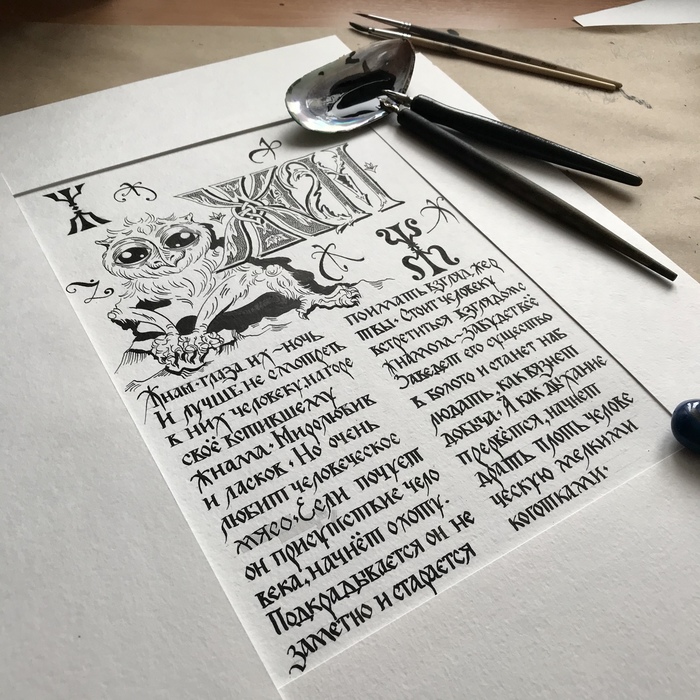 Жнам-глаза их–ночь
И лучше не смотреть
в них человеку, на горе
своё
жнама. Миролюбив
и ласков. Но очень
любит человеческое
мясо. Если почует
он присутствие чело
века, начнёт охоту.
Подкрадывается он не
заметно и старается
поймать взгляд жер
твы. Стоит человеку
встретиться взглядом с
жнамом–забудет всё
Заведет его существо
в болото и станет наб
людать, как вязнет
добыча. А как дыхание
прервётся, начнет
драть плоть челове
ческую мелкими
коготками.